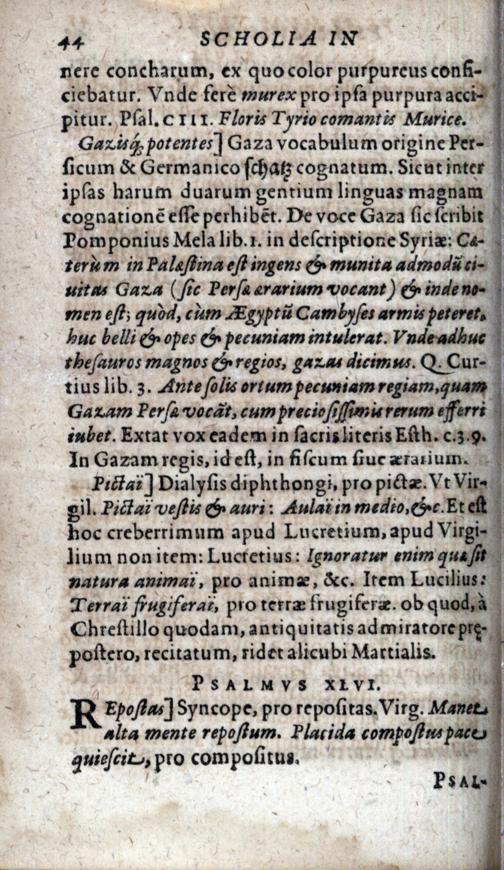 44 SCHOLIA IN
nere concharum, ex quo color purpureus confi-
ciebatur. Vnde ferè murex pro ipsa purpura acci-
pitur. Psal. CIII. Floris Tyrio comantis Murice.
Gazisq́; potentes] Gaza vocabulum origine Per-
sicum & Germanico schatz cognatum. Sicut inter
ipsas harum duarum gentium linguas magnam
cognationē esse perhibēt. De voce Gaza sic scribit
Pomponius Mela lib. 1. in descriptione Syriæ: Cæ-
terùm in Palæstina est ingens & munita admodū ci-
uitas Gaza (sic Persæ ærarium vocant) & inde no-
men est; quòd, cùm Ægyptū Cambyses armis peteret,
huc belli & opes & pecuniam intulerat. Vnde adhuc
thesauros magnos & regios, gazas dicimus. Q. Cur-
tius lib. 3. Ante solis ortum pecuniam regiam, quam
Gazam Persæ vocāt, cum preciosissimis rerum efferri
iubet. Extat vox eadem in sacris literis Esth. c. 3. 9.
In Gazam regis, id est, in fiscum siue ærarium.
Pictaï] Dialysis diphthongi, pro pictæ. Vt Vir-
gil. Pictaï vestis & auri: Aulaï in medio, &c. Et est
hoc creberrimum apud Lucretium, apud Virgi-
lium non item: Lucretius: Ignoratur enim quæ sit
natura animaï, pro animæ, &c. Item Lucilius:
Terraï frugiferaï, pro terræ frugiferæ. ob quod, à
Chrestillo quodam, antiquitatis admiratore prę-
postero, recitatum, ridet alicubi Martialis.
PSALMVS XLVI.
REpostas] Syncope, pro repositas. Virg. Manet
alta mente repostum. Placida compostus pace
quiescit, pro compositus.
PSAL-